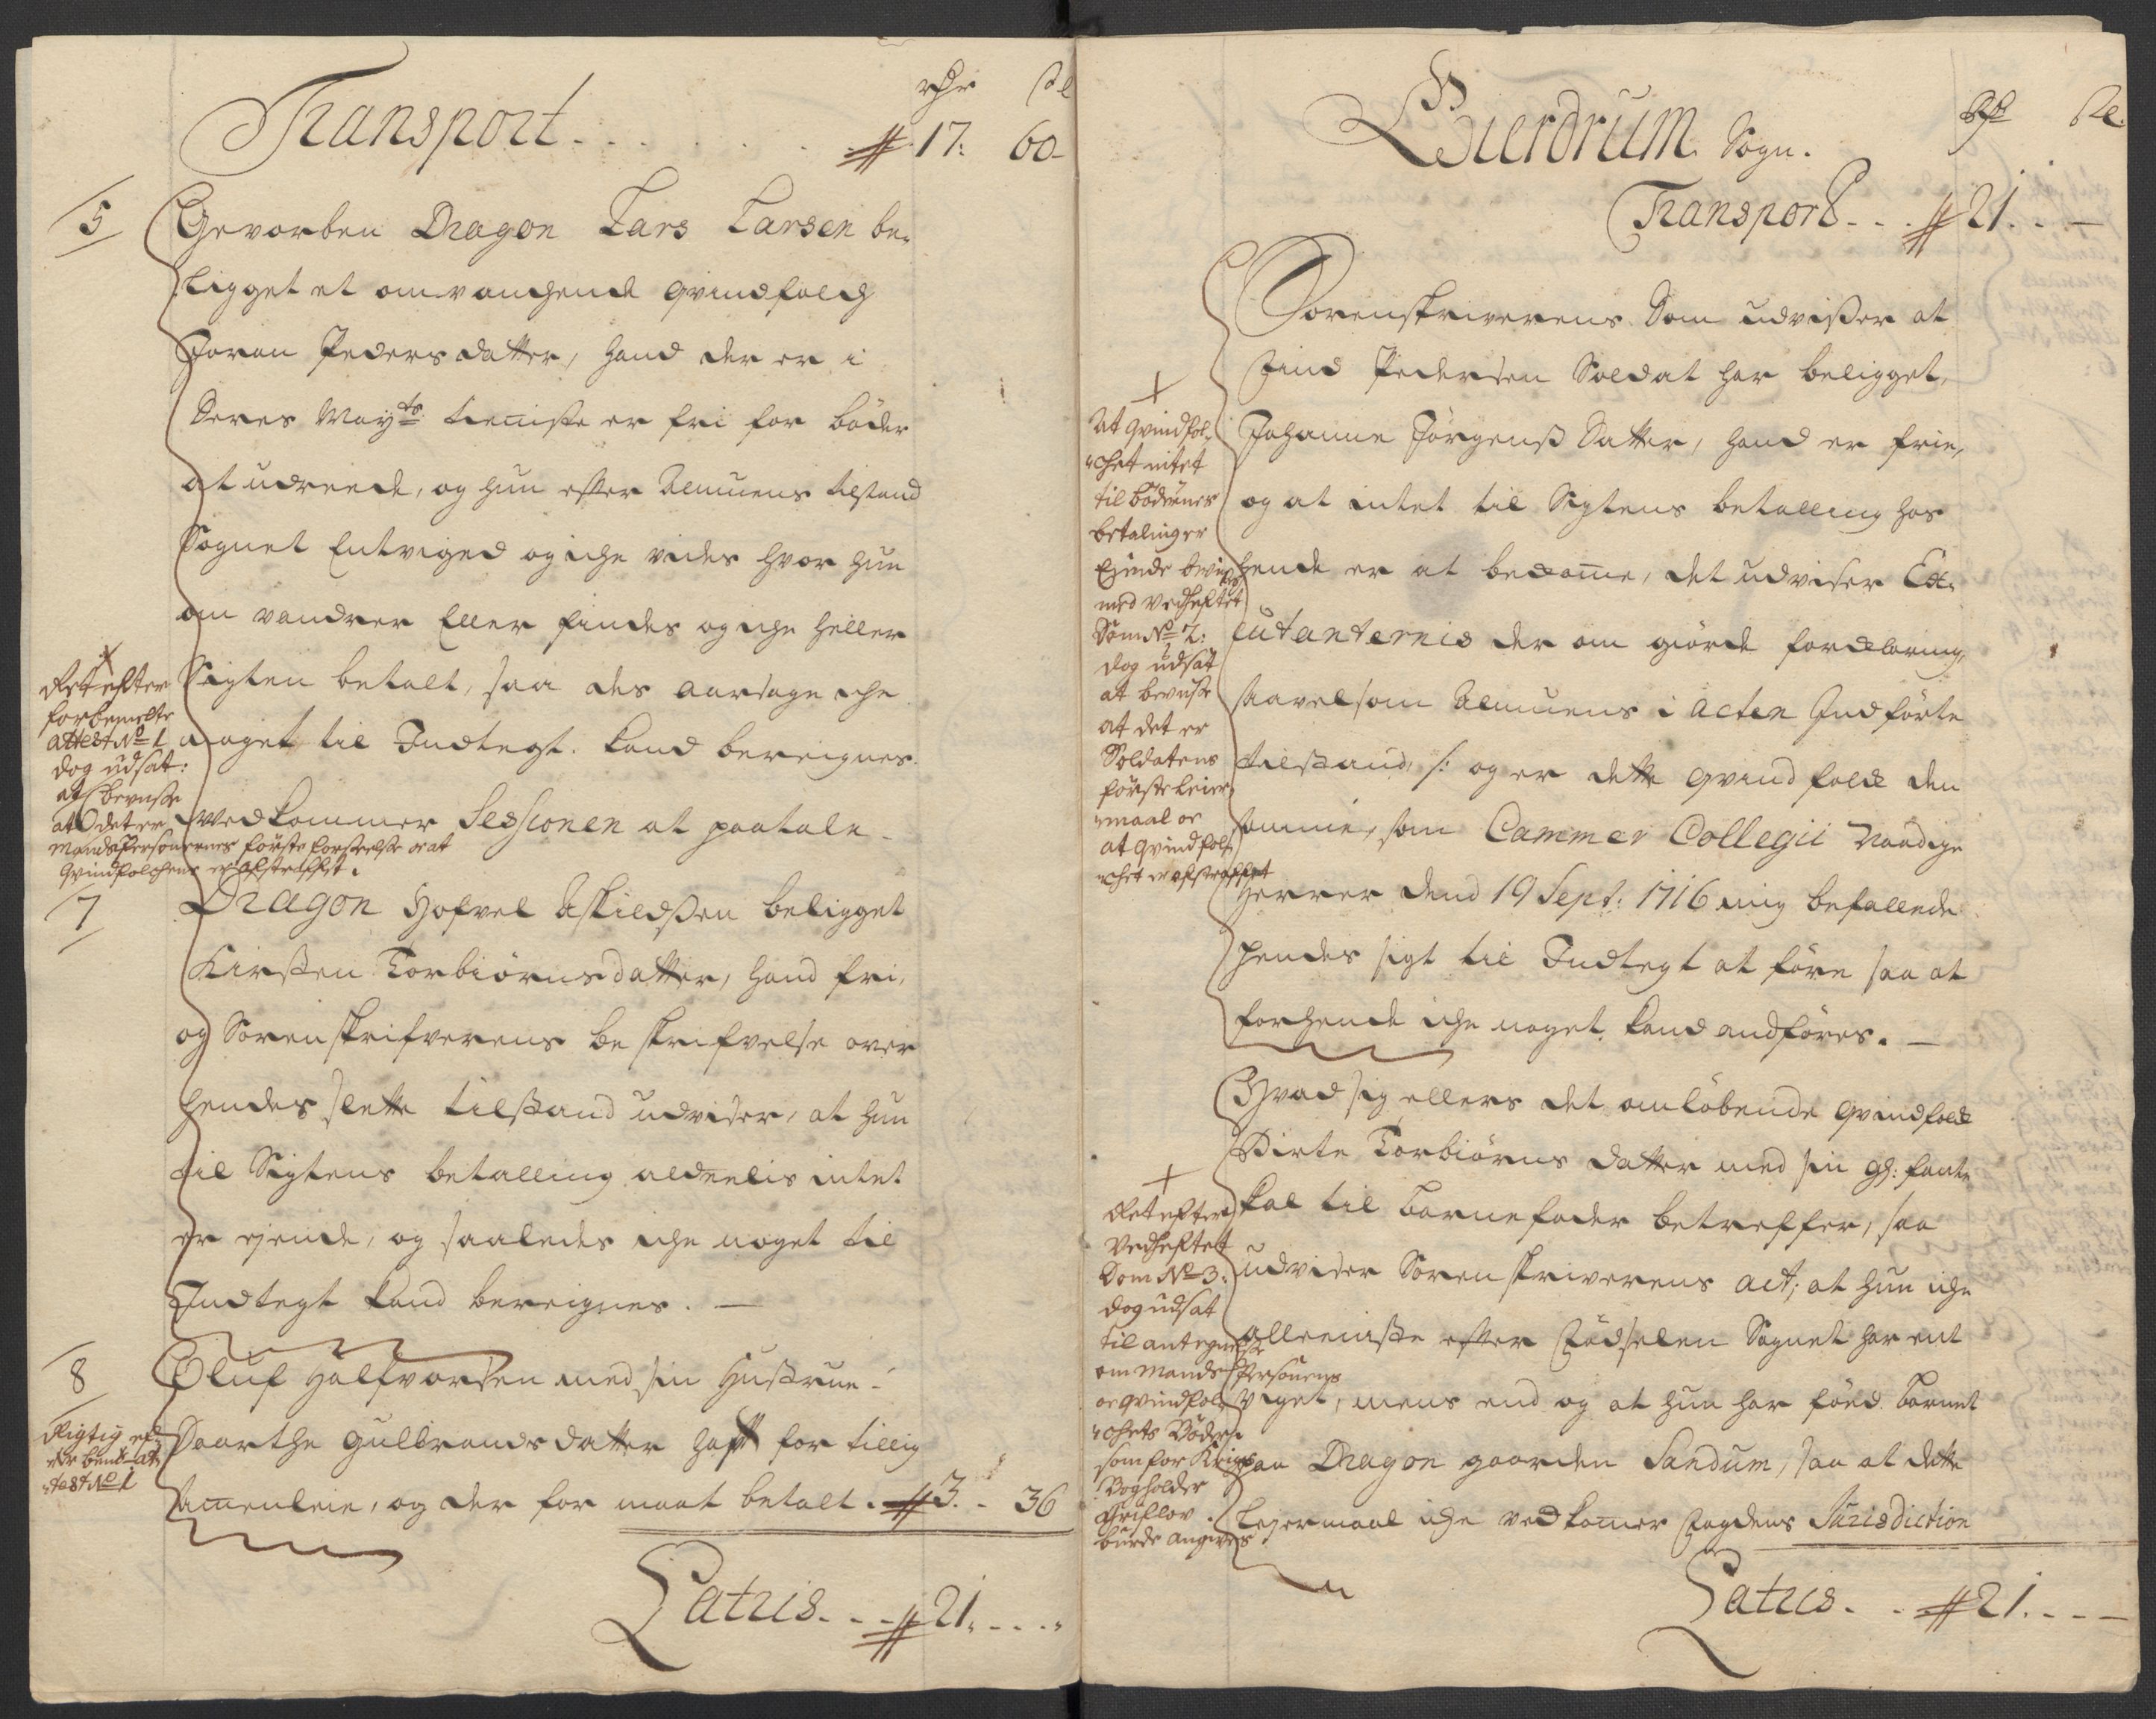 rdr ße
Transport . . . . . # 17: 60-
5
Gevorben Dragon Lars Larsen be-
ligget et omvanchende qvindfolch
Joran Pedersdatter, hand der er i
Deres Mayts: tieniste er fri for böder
at udreede, og hun efter Almuens tilstand
Sognet Entviged og iche vides hvor hun
om vandrer Eller findes og iche heller
Sigten betalt, saa des aarsage iche
noget til Indtegt. kand bereignes.
Vedkommer Sessionen at paatale -
+
Ret efter
forbemelte
attest No 1
dog udsat:
at bevise
at det er
Mands Personernes förste forseelse oc at
Qvindfolchene er afstraffet.
7
Dragon Hofvel Askildsen beligget
Kirsten Torbiörnsdatter, hand fri,
og Sorenskrifverens beskrifvelse over
hendes slette tilstand udviser, at hun
til Sigtens betalling aldeelis intet
er ejende, og saaledes iche noget til
Indtegt kand bereignes. —
8
Oluf Halfvorsen med sin Hustrue
Maarthe Gulbrandsdatter haft for tillig
samenleie, og der for maat betalt. # 3. - 36
Rigtig ef-
ter bemte at-
test No 1
Latris. . - # 21. - . . -
Gierdrum Sogn.
Rdr ße.
Transport - . . # 21. . . —
Sorenskriverens Dom udviser at
Find Pedersen Soldat har beligget,
Johanne Jörgenss Datter, hand er frie,
og at intet til Sigtens betalling hos
hende er at bekomme, det udviser Ex-
cutanternis der om giörde forklaring,
saavelsom Almuens i Acten Indförte
tilstand, /: og er dette qvindfolk den
samme, som Cammer Collegii Naadige
Herrer dend 19 Sept: 1716 mig befallede
hendes sigt til Indtegt at före saa at
for hende iche noget kand andföres. —
+
At qvindfol-
chet intet
til bödernes
betalinger
Ejende bevises
med vedheftet
Dom No 2:
dog udsat
at bevise
at det er
Soldatens
förste Leier-
maal oc
at qvindfol-
chet er afstraffet
Hvad sig ellers det omlöbende qvindfolk
Birte Torbiörns datter med sin
kal til barnefader betreffer, saa
udviser Sorenskriverens act, at hun iche
alleeniste efter Födselen Sognet har ent
viget, mens end og at hun har föed barnet
paa Dragon gaarden Sandum, saa at dette
Lejermaal iche vedkomer Fogdens Jurisdiction
+
Ret efter
Vedheftet
Dom No 3:
dog udsat
til antegnelse
om Mands Personens
oc qvindfol-
chets Böder
som for Krigs
Bogholder
burde angives
Latris. . . # 21. - - —